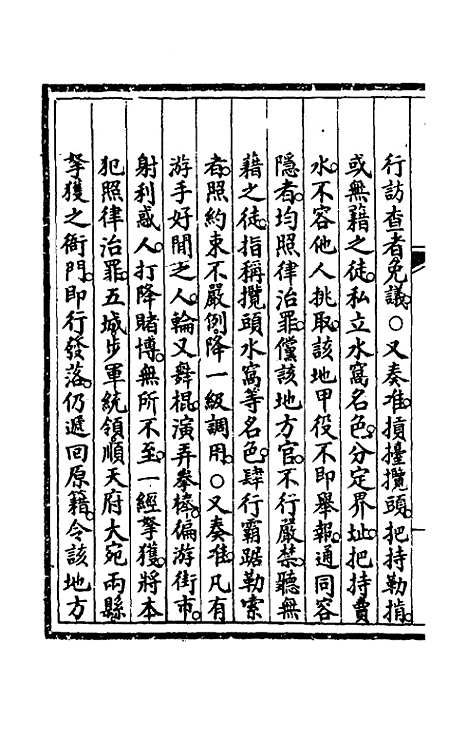 行訪查者免議。○又奏准。損擡攬頭。把持勒掯。
或無籍之徒。私立水窩名色。分定界址。把持賣
水。不容他人挑取。該地甲役不即舉報。通同容
隱者。均照律治罪。儻該地方官。不行嚴禁。聽無
藉之徒。指稱攬頭水窩等名色。肆行霸踞勒索
者。照約束不嚴例。降一級調用。○又奏准。凡有
游手好閒之人。輪叉舞棍。演弄拳棒。徧游街市。
射利惑人。打降賭博。無所不至。一經拏獲。將本
犯照律治罪。五城步軍統領。順天府大宛兩縣
拏獲之衙門。即行發落。仍遞回原籍。令該地方